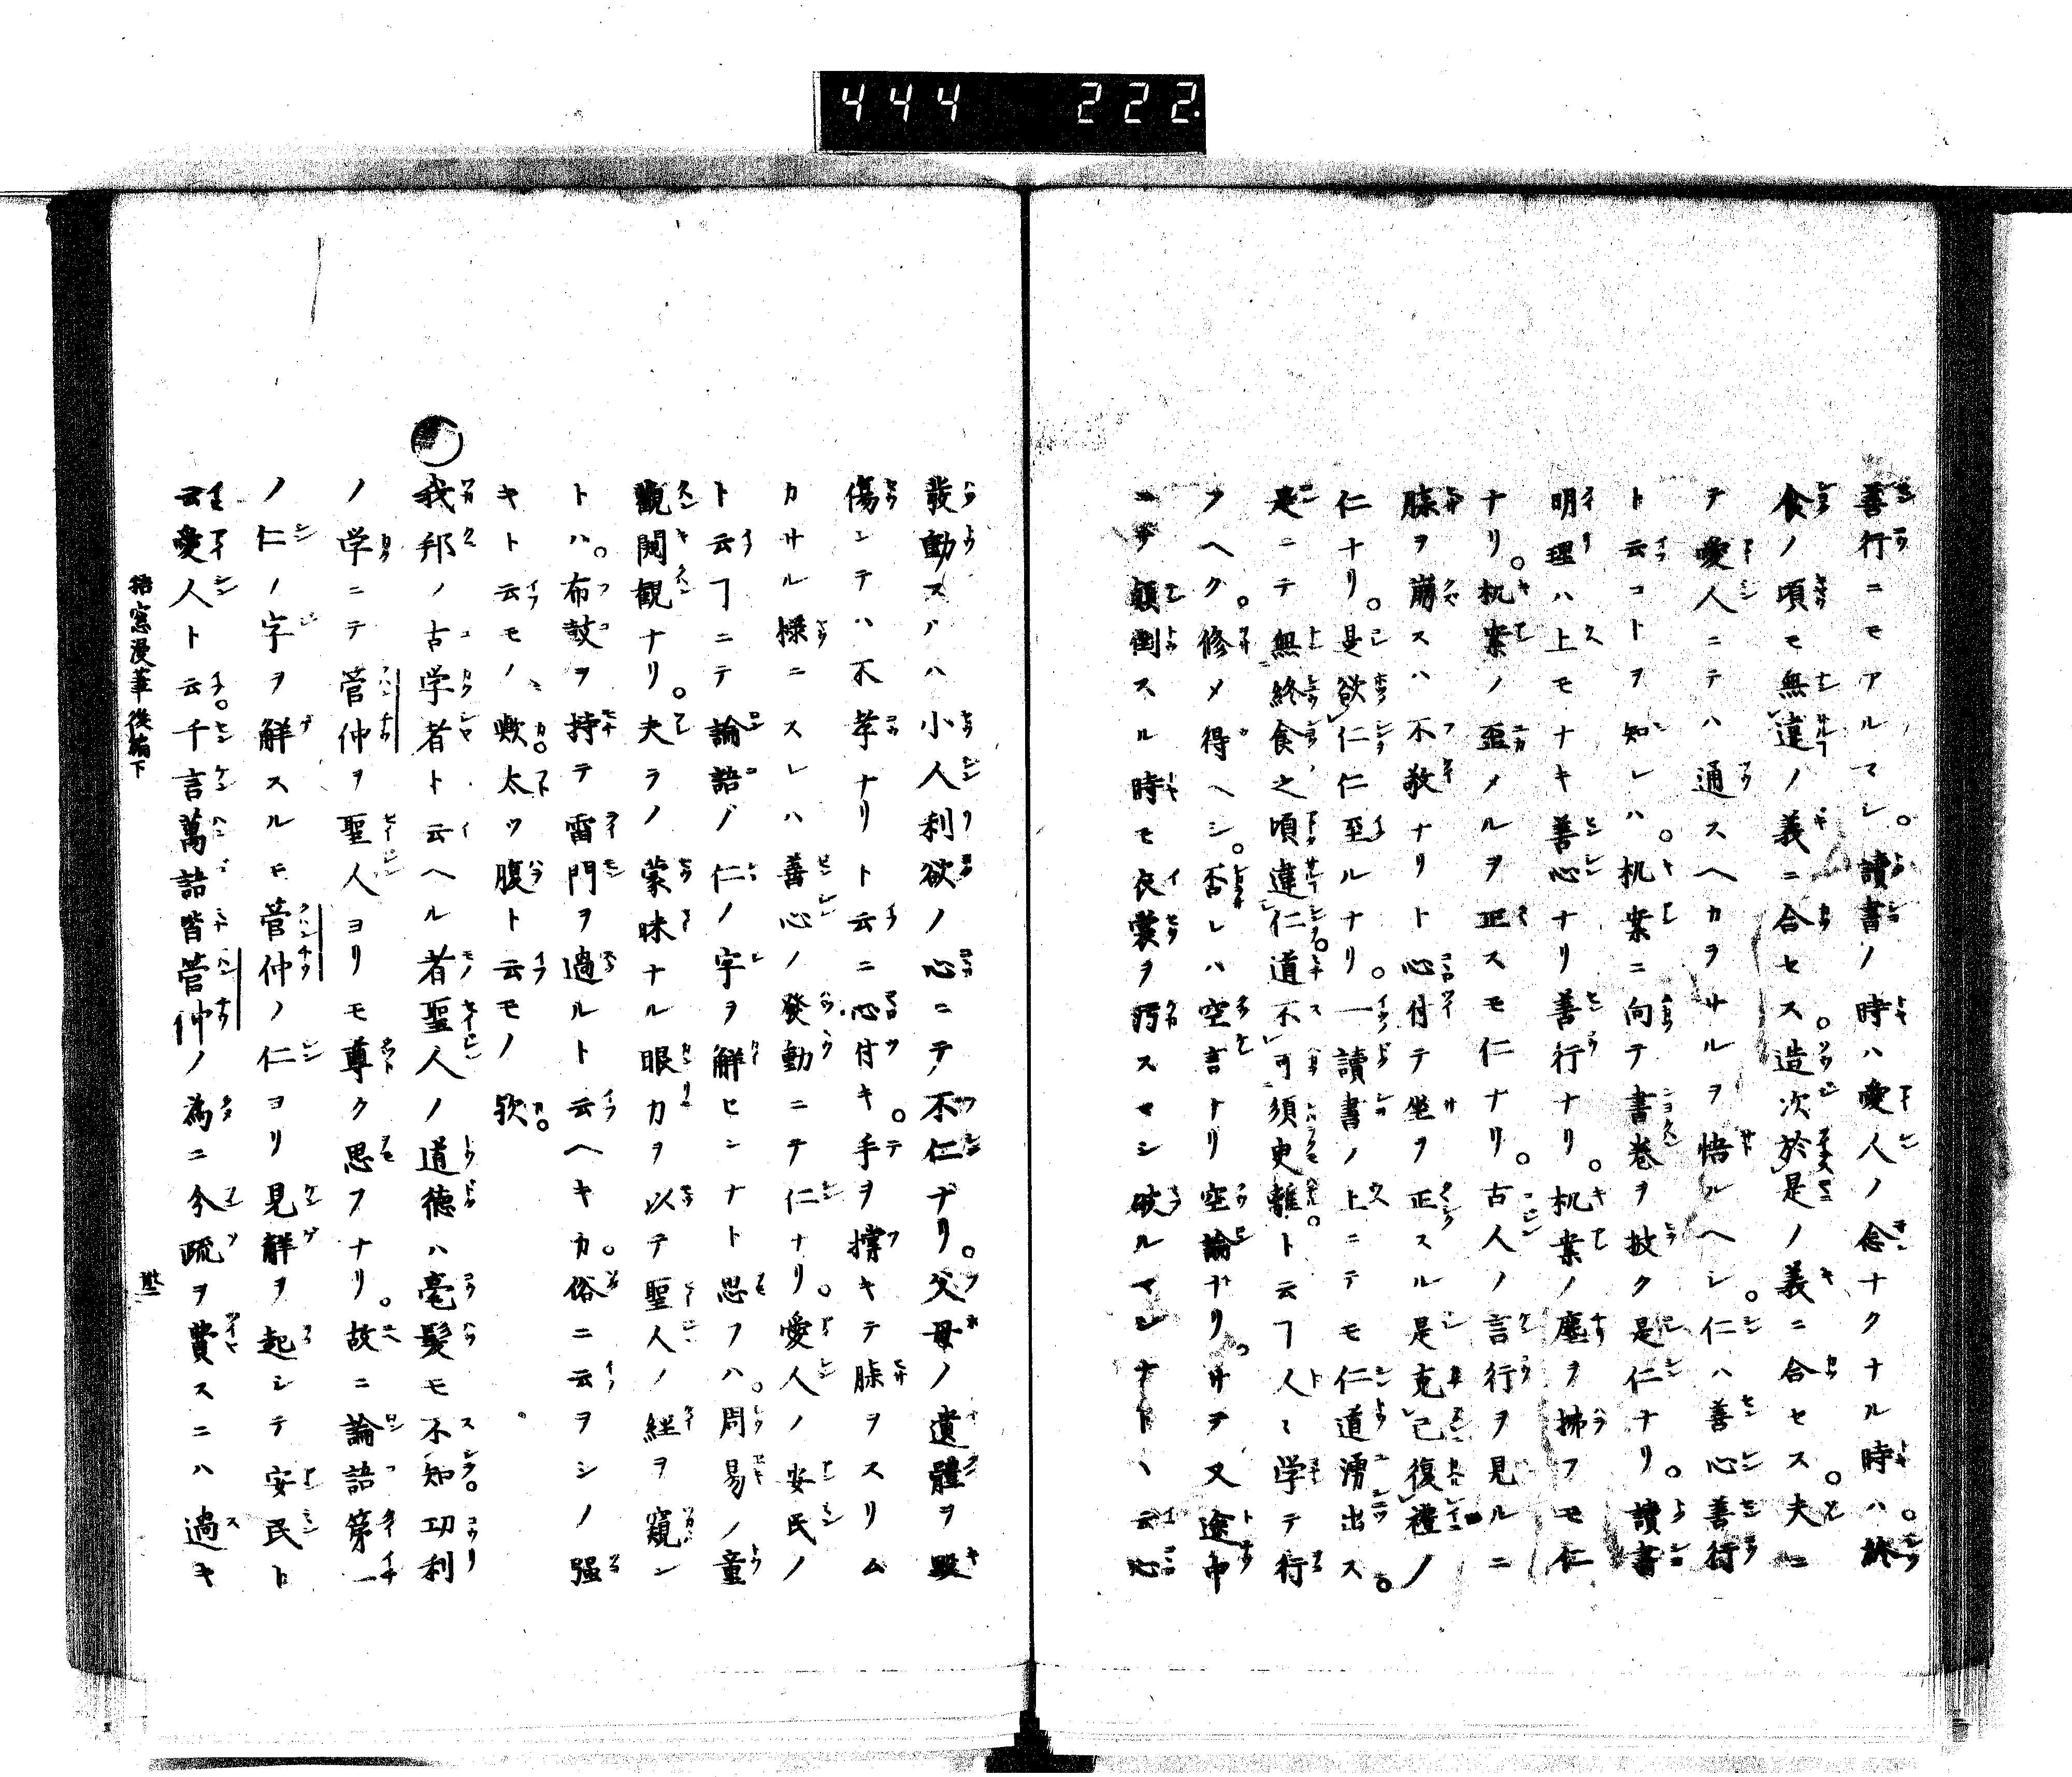 444 222.
善行ニモアルマレ。讀書ノ時ハ愛人ノ念ナクナル時ハ。終
食ノ頃モ無違ノ義ニ合セス。造次於是ノ義ニ合セス。夫ニ
テ愛人ニテハ通スヘカヲサルヲ悟ルヘシ。仁ハ善心善行
ト云コトヲ知レハ。机案ニ向テ書巻ヲ披ク是仁ナリ。讀書
明理ハ上モナキ善心ナリ善行ナリ。机案ノ塵ヲ拂フモ仁
ナリ。机案ノ歪メルヲ正スモ仁ナリ。古人ノ言行ヲ見ルニ
膝ヲ崩スハ不敬ナリト心付テ坐ヲ正スル是克己復禮ノ
仁ナリ。是欲仁仁至ルナリ。一讀書ノ上ニテモ仁道湧出ス。
是ニテ無終食之頃違仁道不可須臾離ト云ヿ人〻学テ行
フヘク。修メ得ヘシ。否レハ空言ナリ空論ナリ。サテ又途中
ニテ顛倒スル時モ衣裳ヲ汚スマシ破ルマシナト、云心
發動スレハ小人利欲ノ心ニテ不仁ナリ。父母ノ遺體ヲ毀
傷シテハ不孝ナリト云ニ心付キ。手ヲ擦キテ膝ヲスリム
カサル様ニスレハ善心ノ發動ニテ仁ナリ。愛人ノ安民ノ
ト云ヿニテ論語ノ仁ノ字ヲ解センナト思フハ。周易ノ童
觀闚観ナリ。夫ラノ蒙昧ナル眼力ヲ以テ聖人ノ經ヲ窺ン
トハ。布鼓ヲ持テ雷門ヲ過ルト云ヘキカ。俗ニ云ヲシノ强
キト云モノヽ歟。太ッ腹ト云モノ歟。
我邦ノ古学者ト云ヘル者聖人ノ道徳ハ毫髮モ不知。功利
ノ学ニテ管仲ヲ聖人ヨリモ尊ク思フナリ。故ニ論語第一
ノ仁ノ字ヲ解スルモ管仲ノ仁ヨリ見解ヲ起シテ安民ト
云愛人ト云。千言萬語皆管仲ノ為ニ分疏ヲ費スニハ過キ
梧窓漫筆後編下